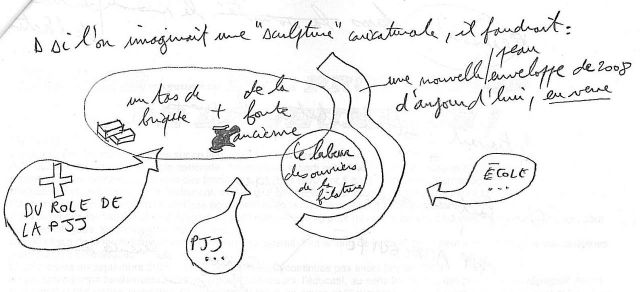 si l'on imaginait une "sculpture" caricaturale, il faudrait :
un tas de
brique
+
de la
fonte
ancienne
une nouvelle / peau
enveloppe de 2008
d'aujourd'hui, en verre
le labeur
des ouvriers
de la
filature
DU ROLE DE
LA PJJ
PJJ
...
ÉCOLE
...